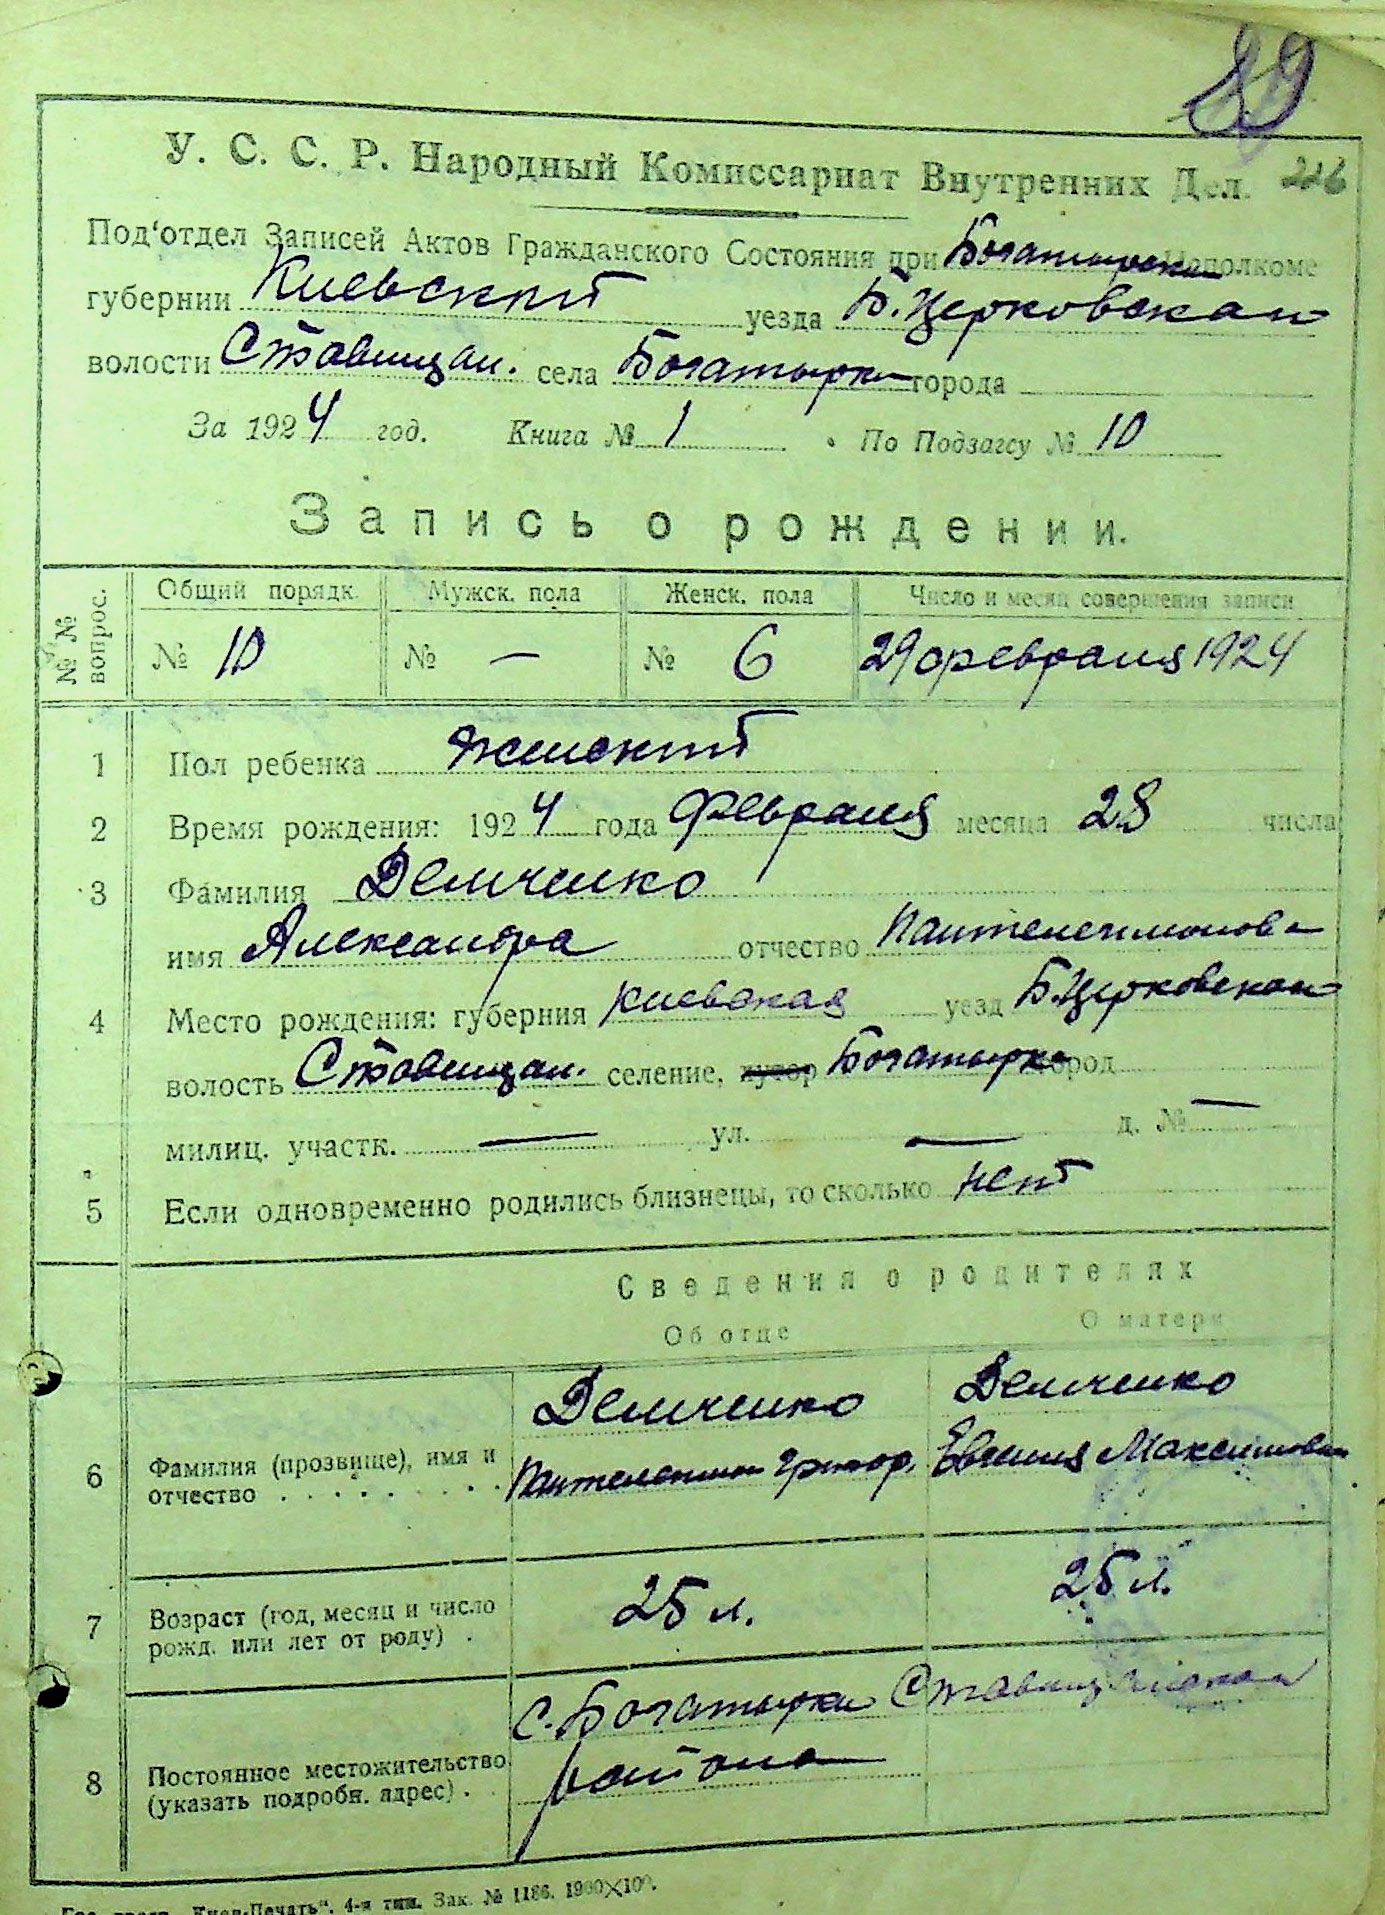 89
У. С. С. Р. Народный Комиссариат Внутренних Дел. 226
Под'отдел Записей Актов Гражданского Состояния при Богатырском Исполкоме
губернии Киевской уезда Б. Церковская
волости Ставищан. села Богатырка города
За 1924 год. Книга № 1 По Подзагсу № 10
Запись о рождении.
№ № вопрос. Общий порядк. Мужск. пола Женск. пола Число и месяц совершения записи
№ 10 № — № 6 29 февраля 1924
1 Пол ребенка женский
2 Время рождения: 1924 года февраля месяца 28 числа
3 Фамилия Демченко
имя Александра отчество Пантелеимонов
4 Место рождения: губерния Киевская уезд Б. Церковская
волость Ставищан. селение, хутор Богатырка город
милиц. участк. — ул. — д. № —
5 Если одновременно родились близнецы, то сколько нет
Сведения о родителях
Об отце О матери
Демченко Демченко
6 Фамилия (прозвище), имя и отчество . . . . . . . . . Пантелеимон Григор. Евгения Максимовна
7 Возраст (год, месяц и число рожд. или лет от роду) . 25 л. 25 л.
8 Постоянное местожительство (указать подробн. адрес) . . с. Богатырка Ставищанского
района
"Киев-Печать", 4-я тип. Зак. № 1186. 1900×100.